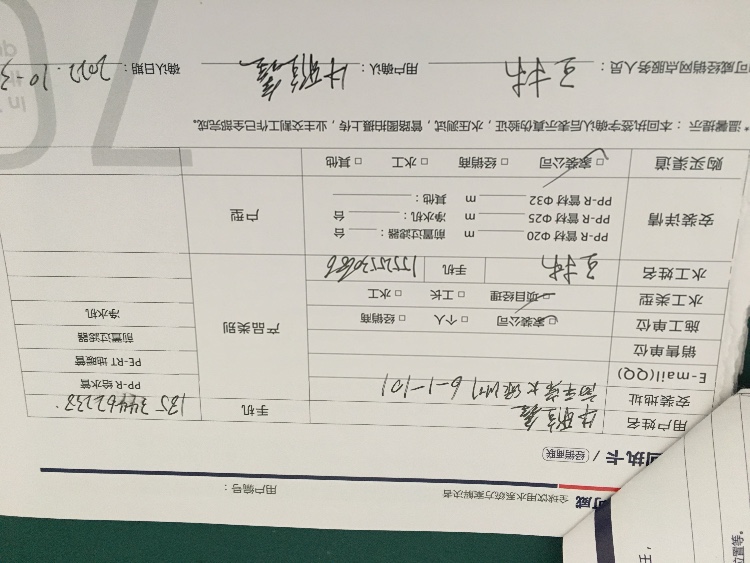 可威
全球饮用水系统方案解决者
用户编号：
回执卡 / 经销商联
用户姓名
手机
安装地址 6-1-101
PP-R 给水管
E-mail(QQ)
PE-RT 地暖管
销售单位
前置过滤器
施工单位 家装公司 个人 经销商
产品类别
净水机
水工类型 项目经理 工长 水工
水工姓名 王林 手机
安装详情
PP-R 管材 Φ20 m 前置过滤器： 台
PP-R 管材 Φ25 m 净水机： 台
PP-R 管材 Φ32 m 其他：
户型
购买渠道 家装公司 经销商 水工 其他
*温馨提示：本回执签字确认后表示真伪验证，水压测试，管路图拍摄上传，业主交割工作已全部完成。
可威经销网点服务人员： 王林 用户确认： 确认日期： 2022.10-3
任，
位置等。